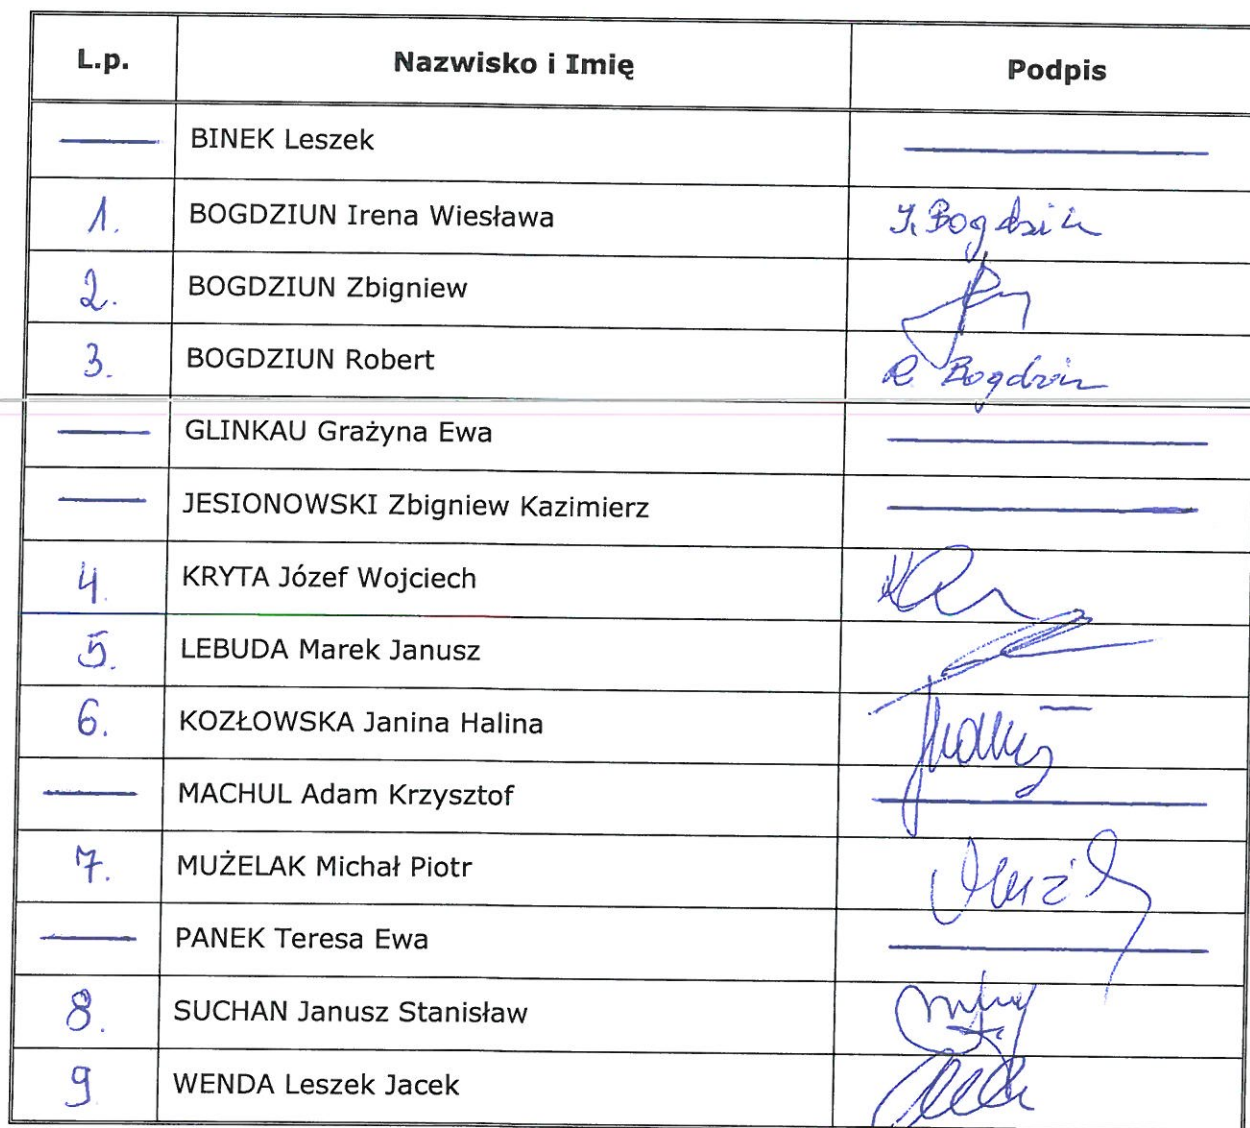 L.p. Nazwisko i Imię Podpis
BINEK Leszek
1. BOGDZIUN Irena Wiesława I. Bogdziun
2. BOGDZIUN Zbigniew
3. BOGDZIUN Robert R Bogdziun
GLINKAU Grażyna Ewa
JESIONOWSKI Zbigniew Kazimierz
4. KRYTA Józef Wojciech
5. LEBUDA Marek Janusz
6. KOZŁOWSKA Janina Halina
MACHUL Adam Krzysztof
7. MUŻELAK Michał Piotr
PANEK Teresa Ewa
8. SUCHAN Janusz Stanisław
9 WENDA Leszek Jacek